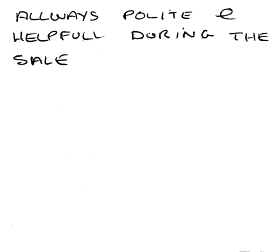 ALLWAYS POLITE &
HELPFULL DURING THE
SALE